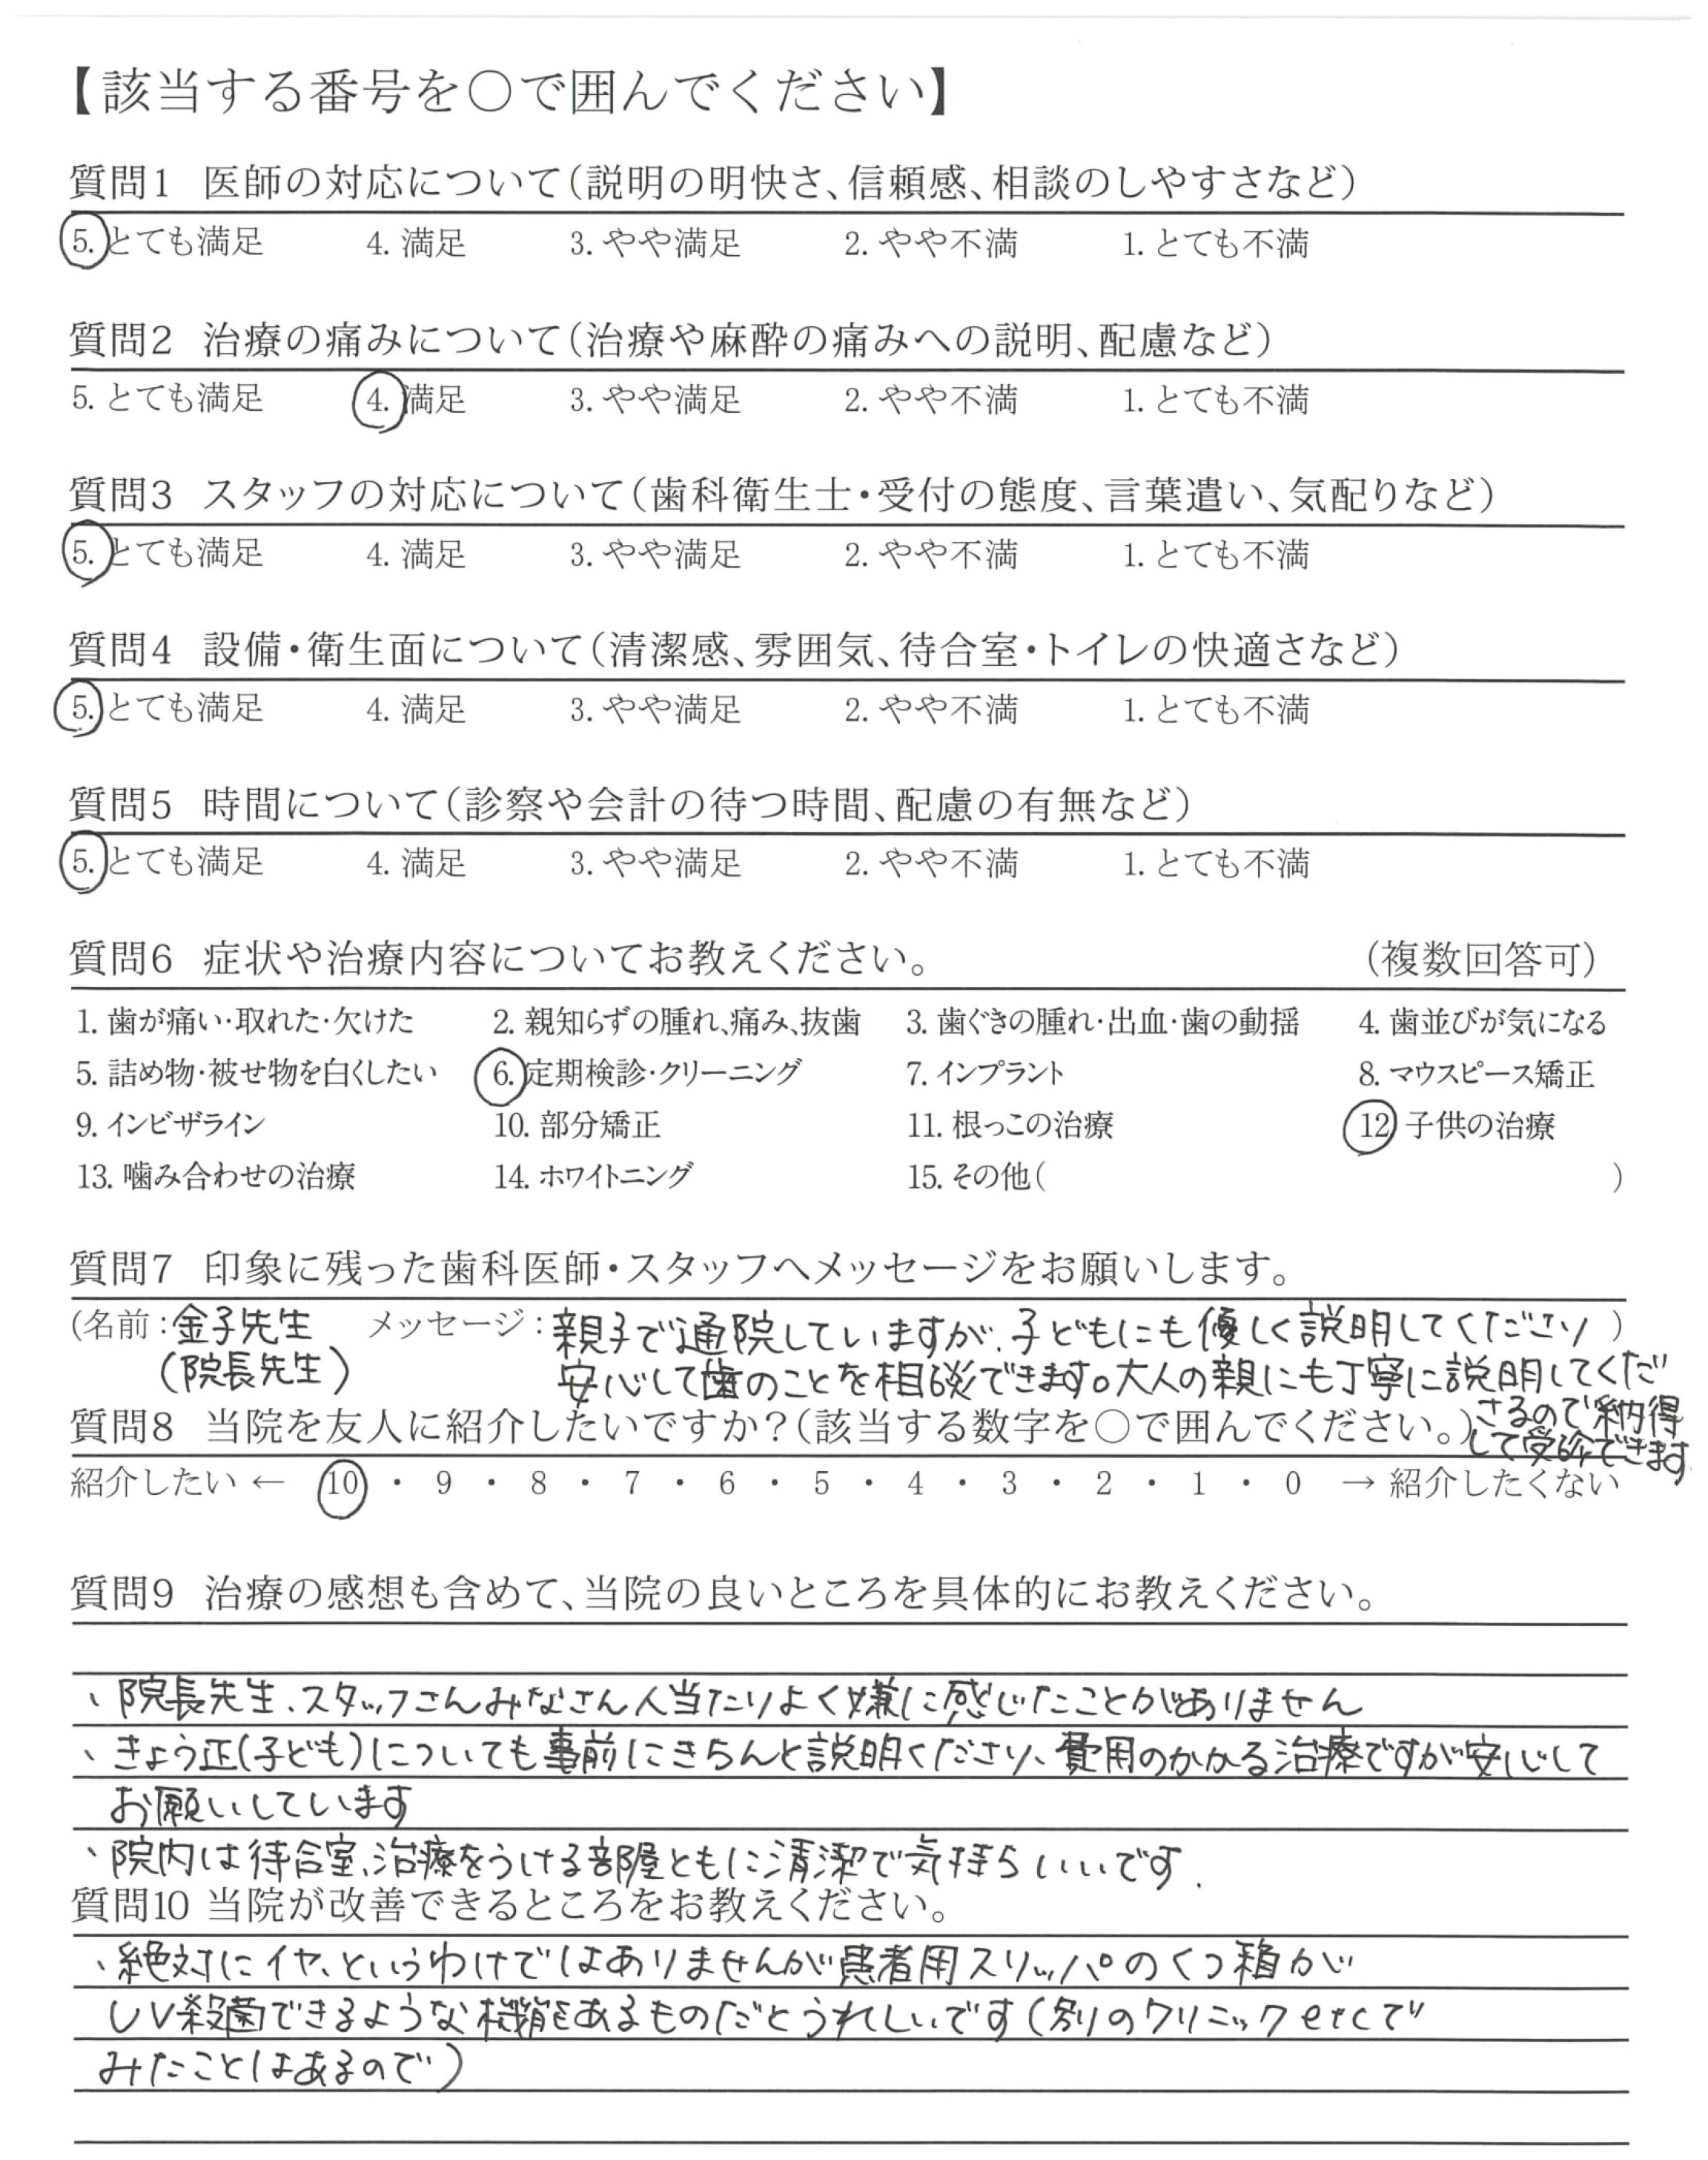 【該当する番号を○で囲んでください】
質問1 医師の対応について(説明の明快さ、信頼感、相談のしやすさなど)
5. とても満足 4. 満足 3. やや満足 2. やや不満 1. とても不満
質問2 治療の痛みについて(治療や麻酔の痛みへの説明、配慮など)
5. とても満足 4. 満足 3. やや満足 2. やや不満 1. とても不満
質問3 スタッフの対応について(歯科衛生士・受付の態度、言葉遣い、気配りなど)
5. とても満足 4. 満足 3. やや満足 2. やや不満 1. とても不満
質問4 設備・衛生面について(清潔感、雰囲気、待合室・トイレの快適さなど)
5. とても満足 4. 満足 3. やや満足 2. やや不満 1. とても不満
質問5 時間について(診察や会計の待つ時間、配慮の有無など)
5. とても満足 4. 満足 3. やや満足 2. やや不満 1. とても不満
質問6 症状や治療内容についてお教えください。 (複数回答可)
1. 歯が痛い・取れた・欠けた 2. 親知らずの腫れ、痛み、抜歯 3. 歯ぐきの腫れ・出血・歯の動揺 4. 歯並びが気になる
5. 詰め物・被せ物を白くしたい 6. 定期検診・クリーニング 7. インプラント 8. マウスピース矯正
9. インビザライン 10. 部分矯正 11. 根っこの治療 12 子供の治療
13. 噛み合わせの治療 14. ホワイトニング 15. その他( )
質問7 印象に残った歯科医師・スタッフへメッセージをお願いします。
(名前:金子先生 メッセージ:親子で通院していますが、子どもにも優しく説明してくださり )
(院長先生) 安心して歯のことを相談できます。大人の親にも丁寧に説明してくだ
さるので納得
して受診できます
質問8 当院を友人に紹介したいですか?(該当する数字を○で囲んでください。)
紹介したい ← 10 ・ 9 ・ 8 ・ 7 ・ 6 ・ 5 ・ 4 ・ 3 ・ 2 ・ 1 ・ 0 → 紹介したくない
質問9 治療の感想も含めて、当院の良いところを具体的にお教えください。
、院長先生、スタッフさんみなさん人当たりよく嫌に感じたことがありません
、きょう正(子ども)についても事前にきちんと説明くださり、費用のかかる治療ですが安心して
お願いしています
、院内は待合室、治療をうける部屋ともに清潔で気持ちいいです.
質問10 当院が改善できるところをお教えください。
、絶対にイヤ、というわけではありませんが患者用スリッパのくつ箱が
UV殺菌できるような機能あるものだとうれしいです(別のクリニックetcで
みたことはあるので)